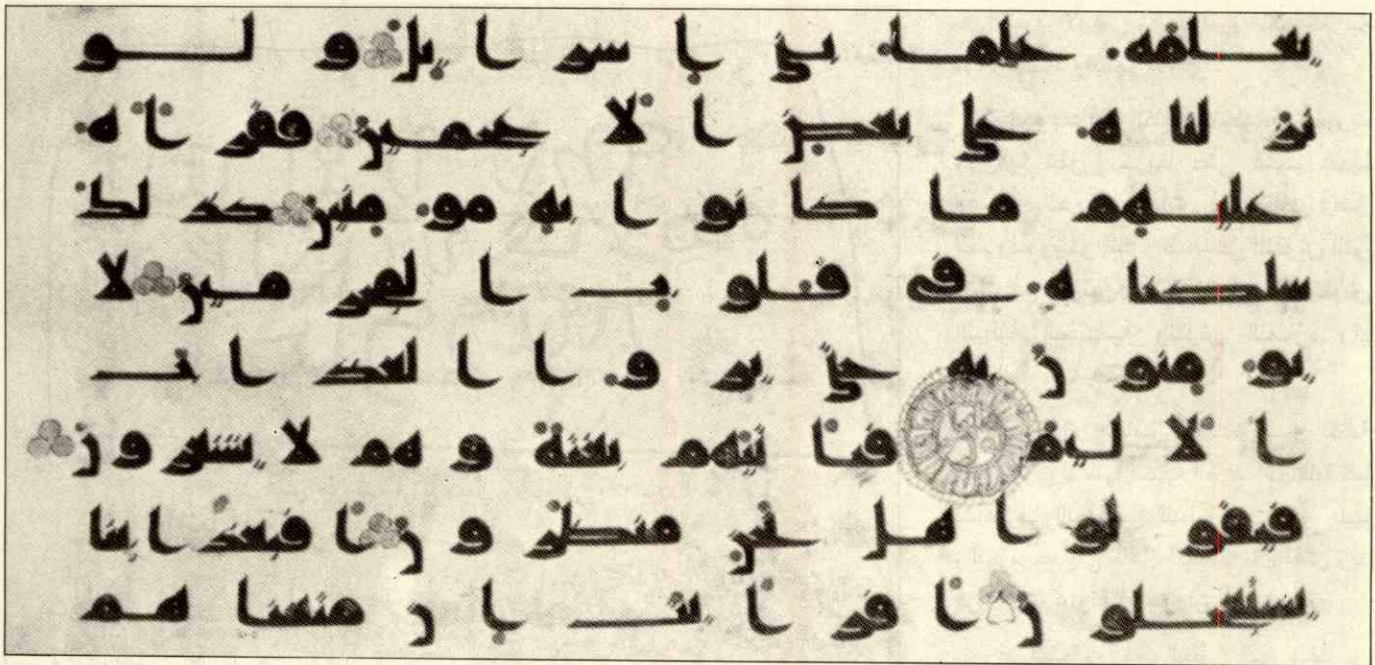 يعلمه علما بني اسرايل ولو
نزلناه على بعض الاعجمين فقراه
عليهم ما كانوا به مومنين كذلك
سلكناه في قلوب المجرمين لا
يومنون به حتى يروا العذاب
الاليم فياتيهم بغتة وهم لا يشعرون
فيقولوا هل نحن منظرون افبعذابنا
يستعجلون افرايت ان متعناهم